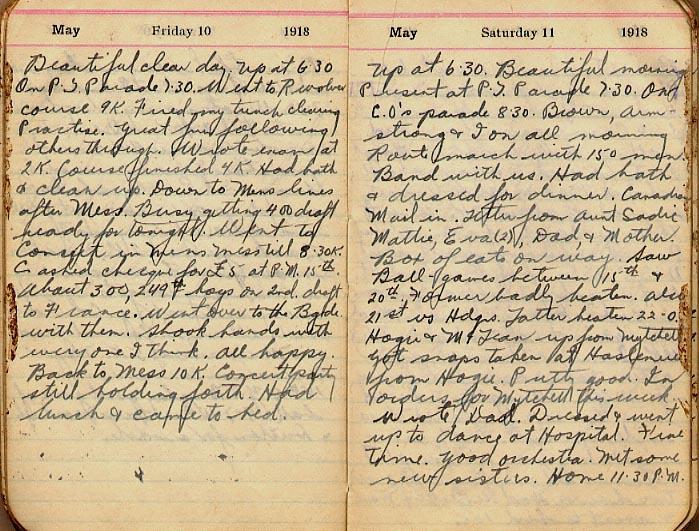 May Friday 10 1918
Beautiful clear day up at 6.30
On P.T. Parade 7.30. Went to Revolver
course 9K. Fired my trench clearing
Practise. Great fun following
others through. Wrote exam at
2K. Course finished 4K. Had bath
& clean up. Down to Mens lines
after Mess. Busy getting 400 draft
ready for tonight. Went to
Concert in Mens mess till 8.30K.
Cashed cheque for £5 at P.M. 15th.
About 300, 249th boys on 2nd. draft
to France. Went over to the Bgde.
with them. Shook hands with
every one I think. All happy.
Back to Mess 10K. Concert party
still holding forth. Had
lunch & came to bed.
May Saturday 11 1918
Up at 6.30. Beautiful morning
Present at P.T. Parade 7.30. On
C.O's parade 8.30. Brown, Arm-
strong & I on all morning
Route march with 150 men.
Band with us. Had bath
& dressed for dinner. Canadian
Mail in. Letter from Aunt Sadie
Mattie, Eva(2), Dad, & Mother.
Box of eats on way. Saw
Ball games between 15th &
20th. Former badly beaten. Also
21st vs Hdqs. Latter beaten 22-0.
Hogie & McLean up from Mytchett
Got snaps taken at Haslemere
from Hogie. Putty good. In
orders for Mytchett this week.
Wrote Dad. Dressed & went
up to dance at Hospital. Fine
time. Good orchestra. Met some
new sisters. Home 11.30 P.M.